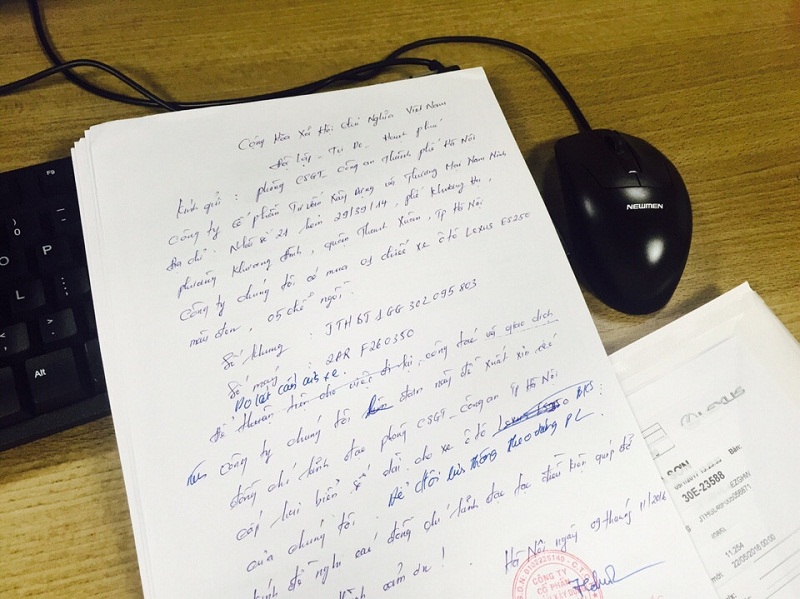 Cộng Hòa Xã Hội Chủ Nghĩa Việt Nam
Độc lập - Tự Do - Hạnh phúc
Kính gửi : phòng CSGT - Công an Thành phố Hà Nội
Công ty cổ phần Tư vấn Xây Dựng và Thương Mại Nam Ninh
Địa chỉ : Nhà số 21 hẻm 29/39/14, phố Khương Hạ,
phường Khương Đình, quận Thanh Xuân, Tp Hà Nội
Công ty chúng tôi có mua 01 chiếc xe ô tô Lexus ES250
màu đen, 05 chỗ ngồi
Số khung : JTHBJ1GG302095803
Số máy : 2AR F260350
Do lắp cản cửa xe.
Để thuận tiện cho việc đi lại, công tác và giao dịch
Nên Công ty chúng tôi làm đơn này đề xuất xin các
đồng chí lãnh đạo phòng CSGT - Công an Tp Hà Nội
cấp lại biển số dài cho xe ô tô Lexus BKS:
của chúng tôi. Để lưu thông theo đúng PL.
Kính đề nghị các đồng chí lãnh đạo tạo điều kiện giúp đỡ
cảm ơn !
Hà Nội ngày 09 tháng 11/2016
CÔNG TY
CỔ PHẦN
NEWMEN
Alt
P
O
L
LEXUS
SON
30E-23588
Bán:
11.254
22/05/2018 00:00